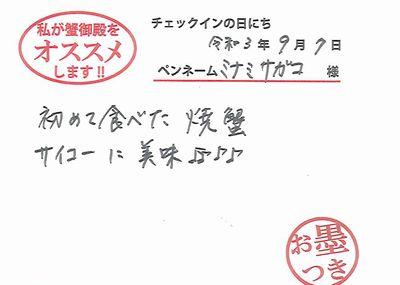 私が蟹御殿を
オススメ
します!!
チェックインの日にち
令和3年9月7日
ペンネーム ミナミサガコ 様
初めて食べた 焼蟹
サイコーに 美味♫♪♪
お墨
つき